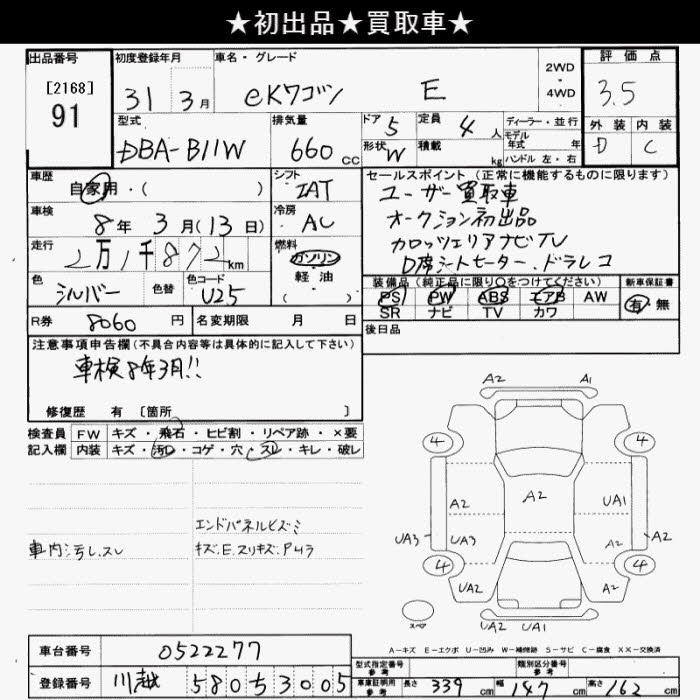 ★初出品★買取車★
出品番号 初度登録年月 車名・グレード 2WD・4WD 評価点
[2168]
91
31年 3月 eKワゴン E 3.5
型式 排気量 ドア 5 定員 4人 ディーラー・並行 外装 内装
DBA-B11W 660cc 形状 W 積載 kg モデル年式 年 D C
ハンドル 左・右
車歴 シフト セールスポイント(正常に機能するものに限ります)
自家用・( ) IAT ユーザー買取車
車検 冷房 オークション初出品
8年3月(13日) AC カロッツェリアナビTV
走行 燃料 D席シートヒーター.ドラレコ
2万1千872km ガソリン
軽油
( )
色 色替 色コード 装備品(純正品に限り○をつけてください) 新車保証書
シルバー U25 PS PW ABS エアB AW 有・無
SR ナビ TV カワ
R券 8060円 名変期限 月 日 後日品
注意事項申告欄(不具合内容等は具体的に記入して下さい)
車検8年3月!!
修復歴 有 [箇所 ]
検査員 FW キズ・飛石・ヒビ割・リペア跡・×要
記入欄 内装 キズ・汚レ・コゲ・穴・スレ・キレ・破レ
エンドパネルヒズミ
車内汚し.スレ キズ.E.スリキズ.Pムラ
A2 A1
4 4
A2 A2 UA1
UA3 UA3 A2 A2
4 4
UA2 A2
スペア A2 UA1
A-キズ E-エクボ U-凹み W-補修跡 S-サビ C-腐食 XX-交換済
車台番号 0522277 型式指定番号 参考 類別区分番号 参考
登録番号 川越 580 5 3005 車庫証明用 参考 長さ 339cm 幅 147cm 高さ 162cm